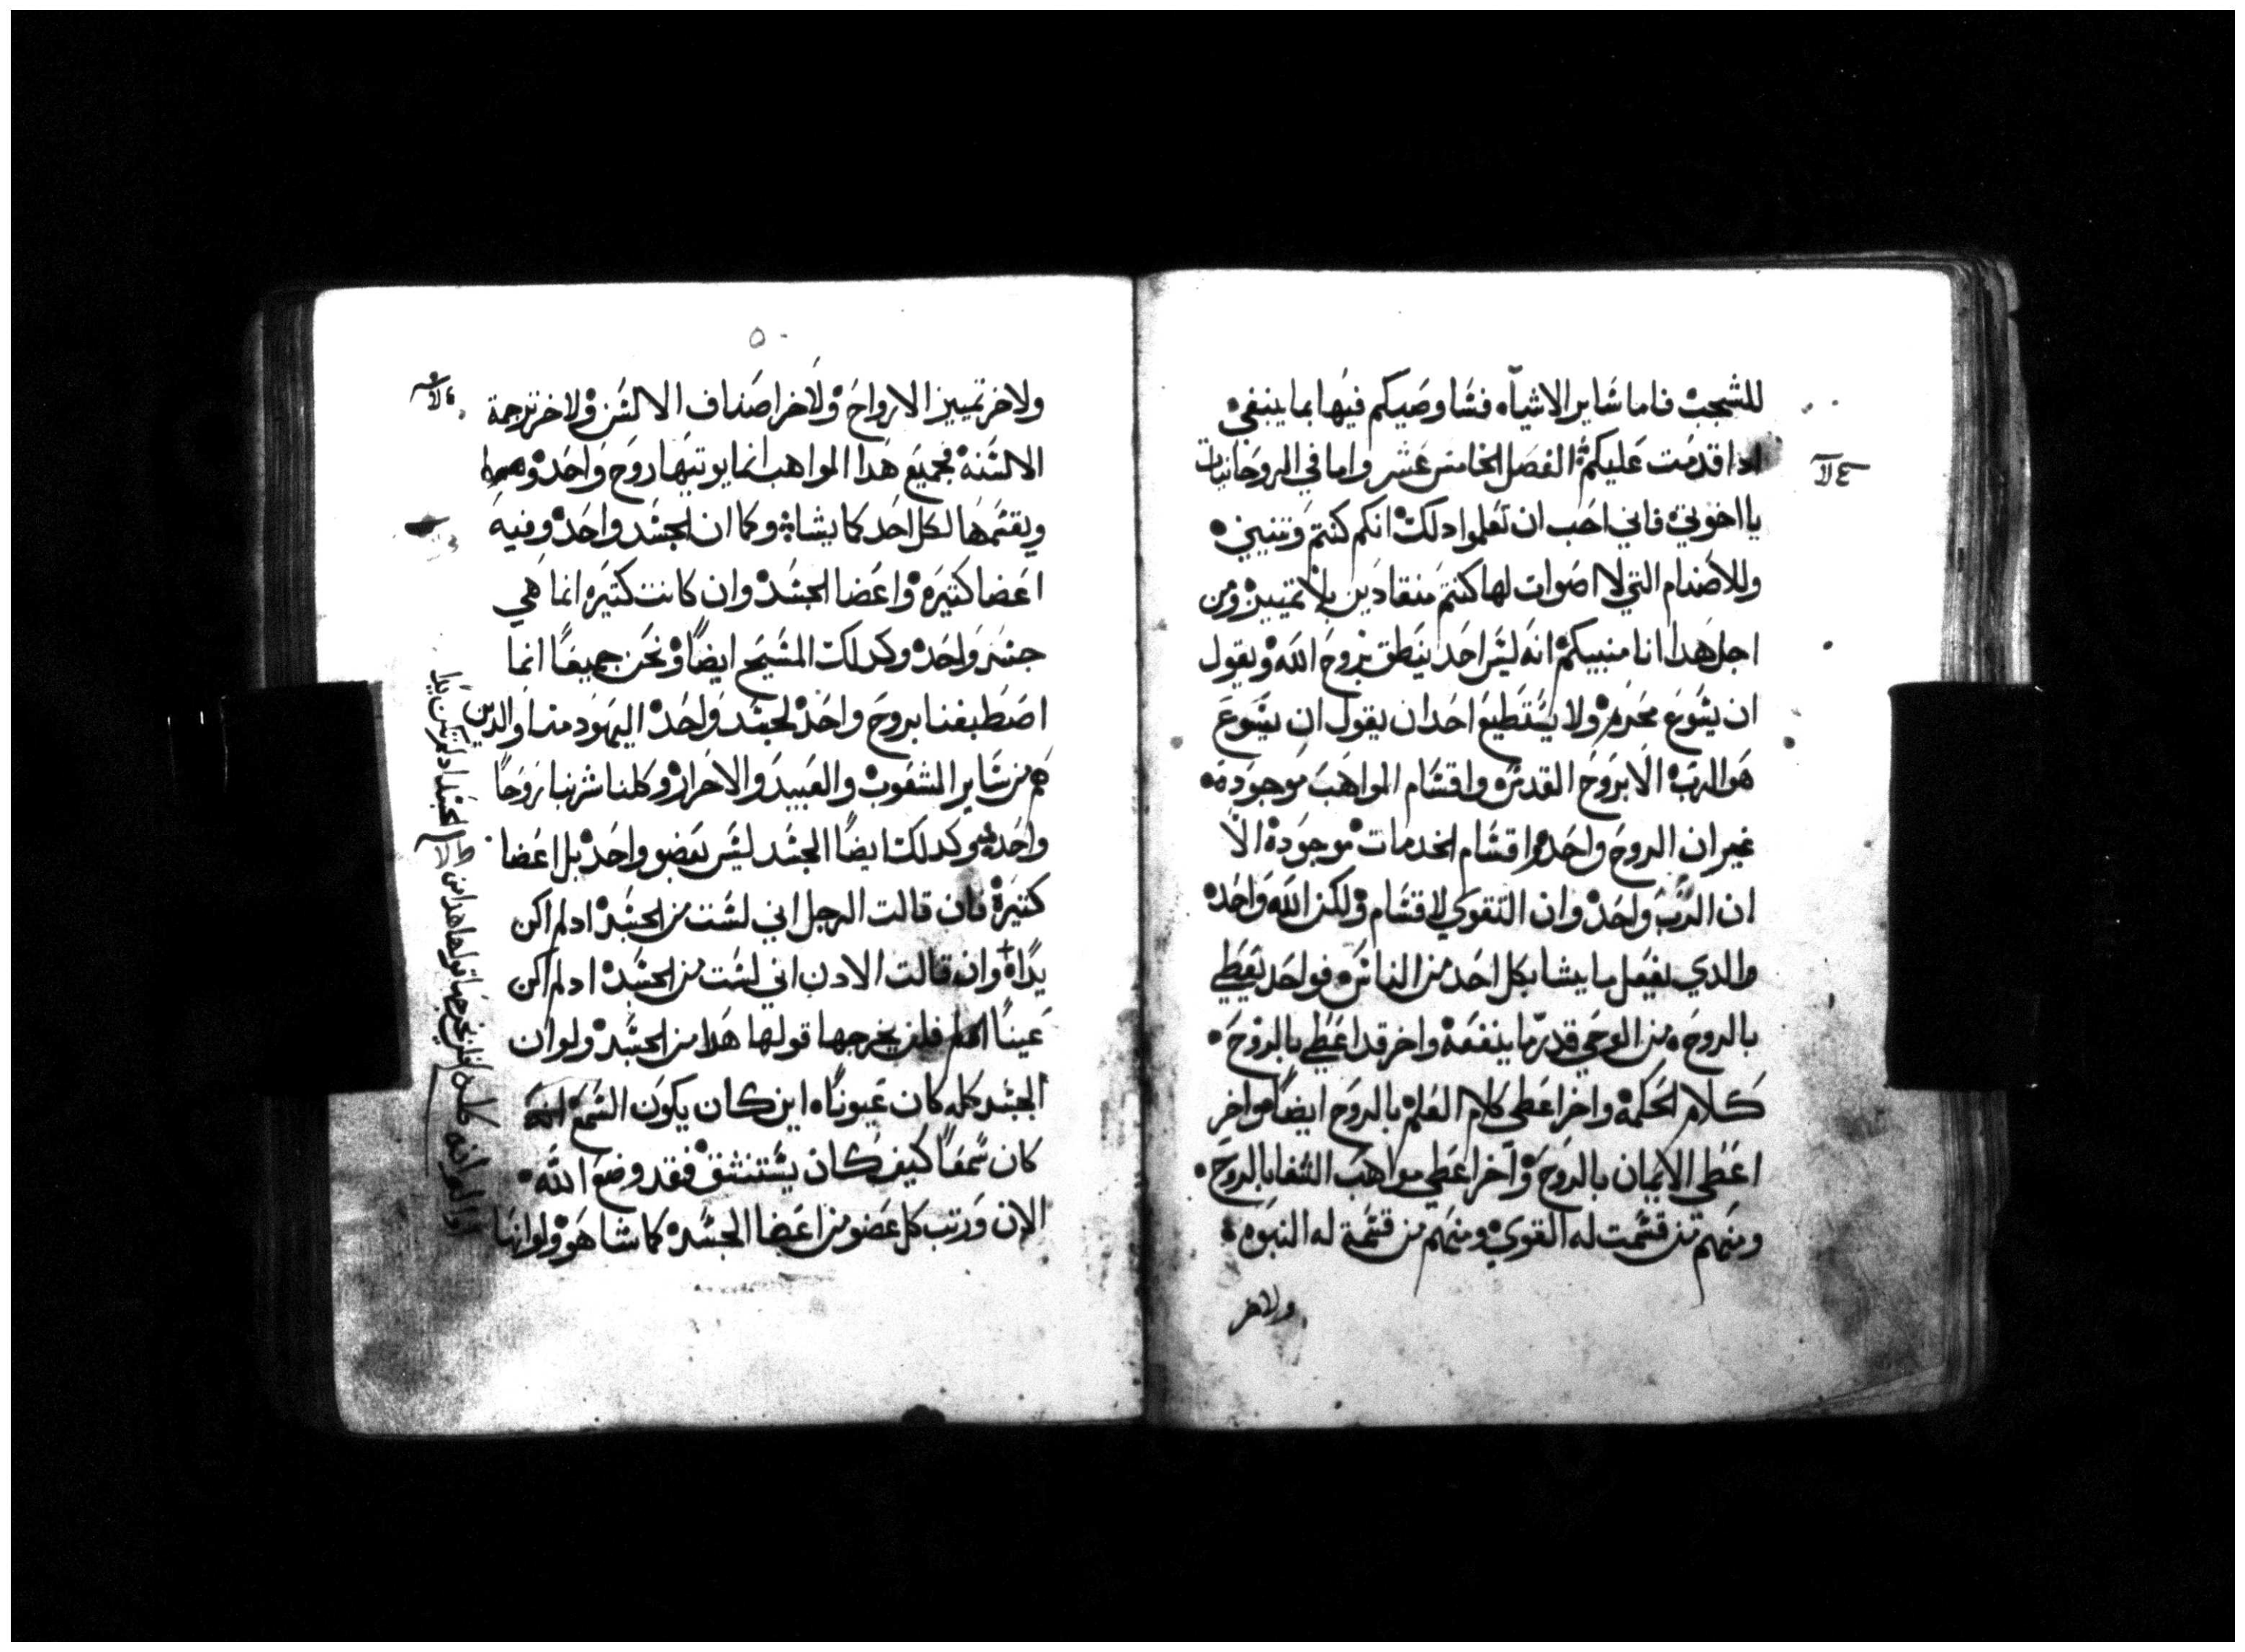 للشجب فاما ساير الاشيآء فساوصيكم فيها بما ينبغي
ادا قدمت عليكم الفصل الخامس عشر واما في الروحانيات
يا اخوتي فاني احب ان تعلموا دلك انكم كنتم وتنيين
وللاصنام التي لا اصوات لها كنتم منقادين بلا تمييز ومن
اجل هدا انا منبيكم انه ليس احد ينطق بروح الله ويقول
ان يسوع محرم ولا يستطيع احد ان يقول ان يسوع
هو الرب الا بروح القدس واقسام المواهب موجوده
غير ان الروح واحد واقسام الخدمات موجودة الا
ان الرب واحد وان التقوي لاقسام ولكن الله واحد
والدي يفعل ما يشا بكل احد من الناس فواحد يعطي
بالروح من الوحي قدر ما ينفعه واخر قد اعطي بالروح
كلام الحكمة واخر اعطي كلام العلم بالروح ايضا واخر
اعطي الايمان بالروح وآخر اعطي مواهب الشفا بالروح
ومنهم من قسمت له القوي ومنهم من قسمة له النبوه
ولاخر
٥٠
ولاخر تمييز الارواح ولاخر اصناف الالسن ولاخر ترجمة
الالسنة فجميع هدا المواهب انما يوتيها روح واحد
ويقسمها لكل احد كما يشا وكما ان الجسد واحد وفيه
اعضا كتيره واعضا الجسد وان كانت كتيره انما هي
جسد واحد وكدلك المسيح ايضاً ونحن جميعاً انما
اصطبغنا بروح واحد لجسد واحد اليهود منا والدين
هم من ساير الشعوب والعبيد والاحرار وكلنا شربنا روحاً
واحد وكدلك ايضاً الجسد ليس بعضو واحد بل اعضا
كتيرة فان قالت الرجل اني لست من الجسد اد لم اكن
يداً وان قالت الادن اني لست من الجسد اد لم اكن
عيناً فلن يخرجها قولها هدا من الجسد ولو ان
الجسد كله كان عيوناً اين كان يكون السمع
كان سمعاً كيف كان يستنشق فقد وضع الله
الان ورتب كل عضو من اعضا الجسد كما شا هو ولو انها